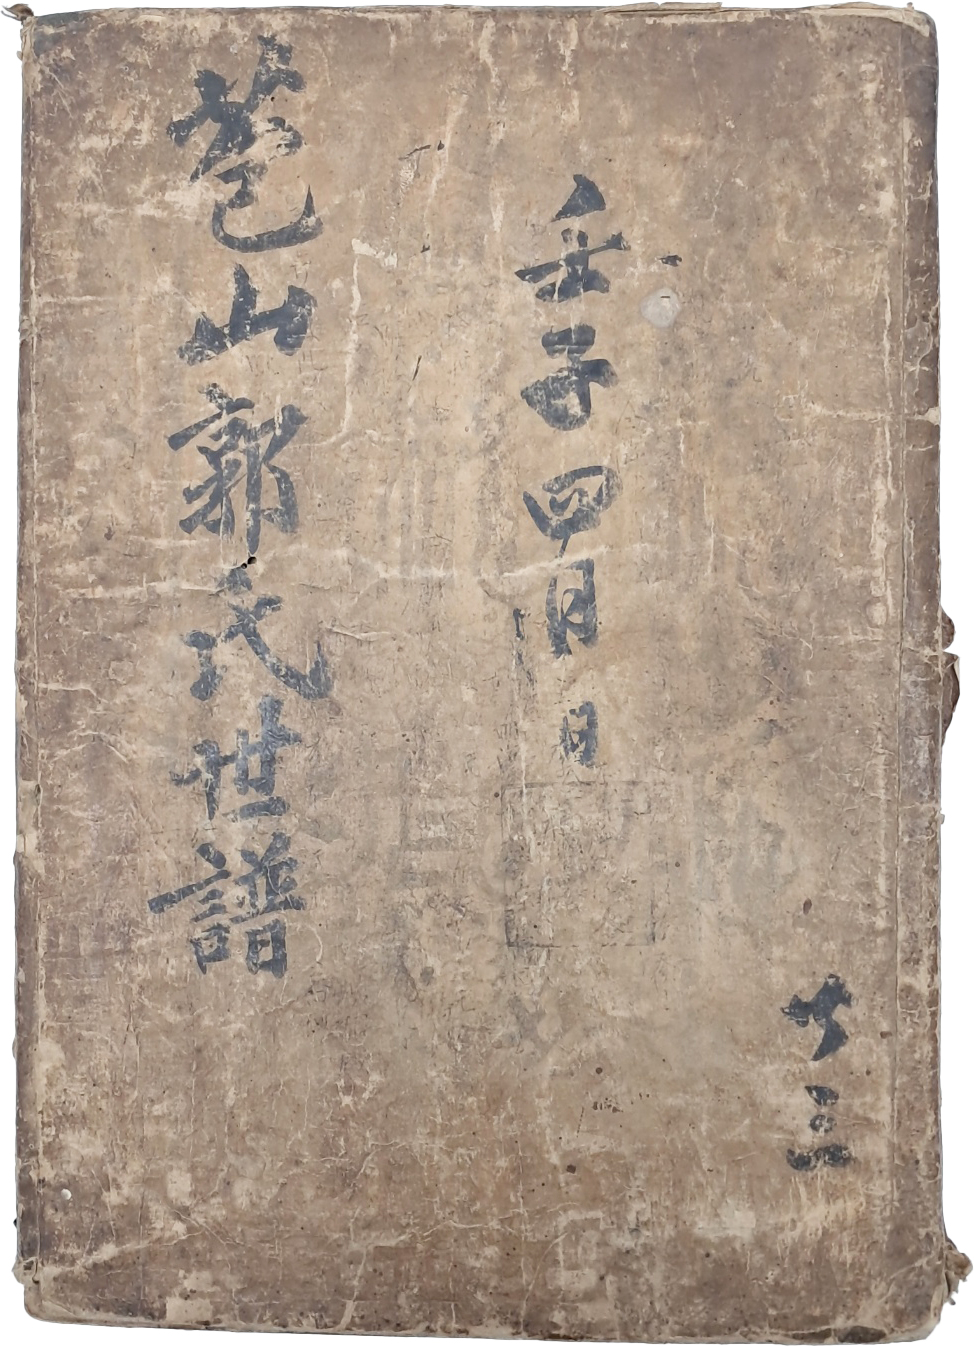 共三
壬子四月日
苞山郭氏世譜